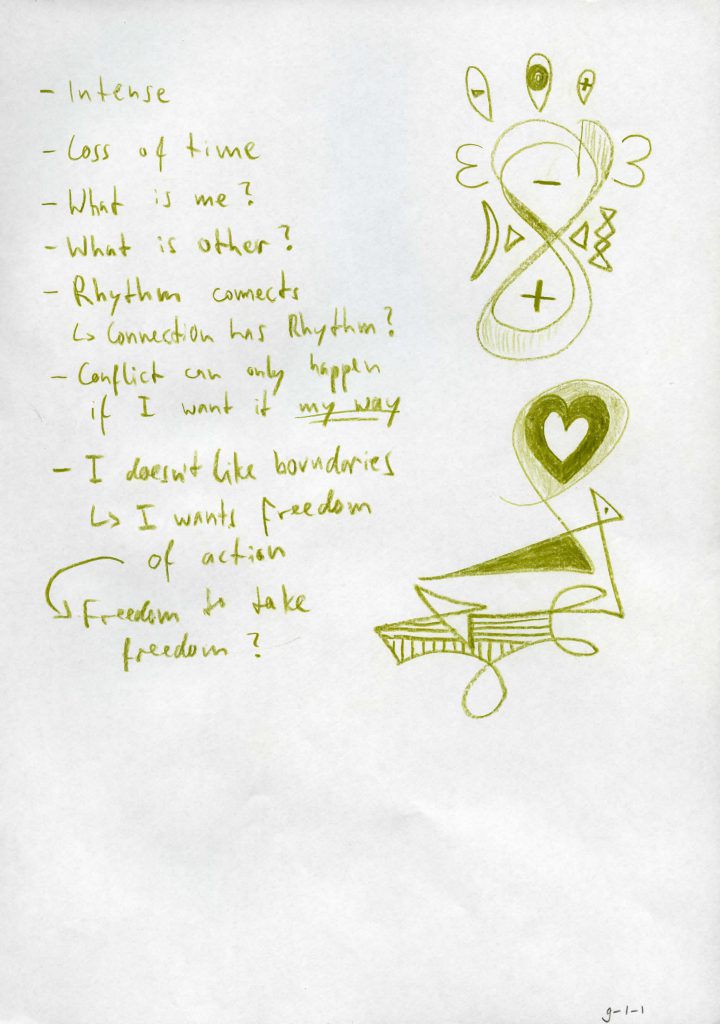 - Intense
- Loss of time
- What is me?
- What is other?
- Rhythm connects
↳ Connection has Rhythm?
- Conflict can only happen
if I want it my way
- I doesn't like boundaries
↳ I wants freedom
of action
Freedom to take
freedom?
g-1-1